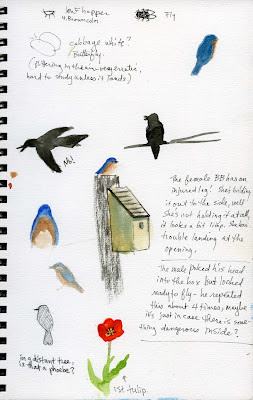 leaf hopper
Fly
cabbage white?
Butterfly.
(flittering in the air - very erratic,
hard to study unless it lands)
The female BB has an
injured leg! She's holding
it out to the side, well
she's not holding it at all,
it looks a bit limp. She has
trouble landing at the
opening.
The male poked his head
into the box but looked
ready to fly - he repeated
this about 4 times, maybe
it's just in case there is some-
thing dangerous inside?
in a distant tree,
is that a phoebe?
1st tulip